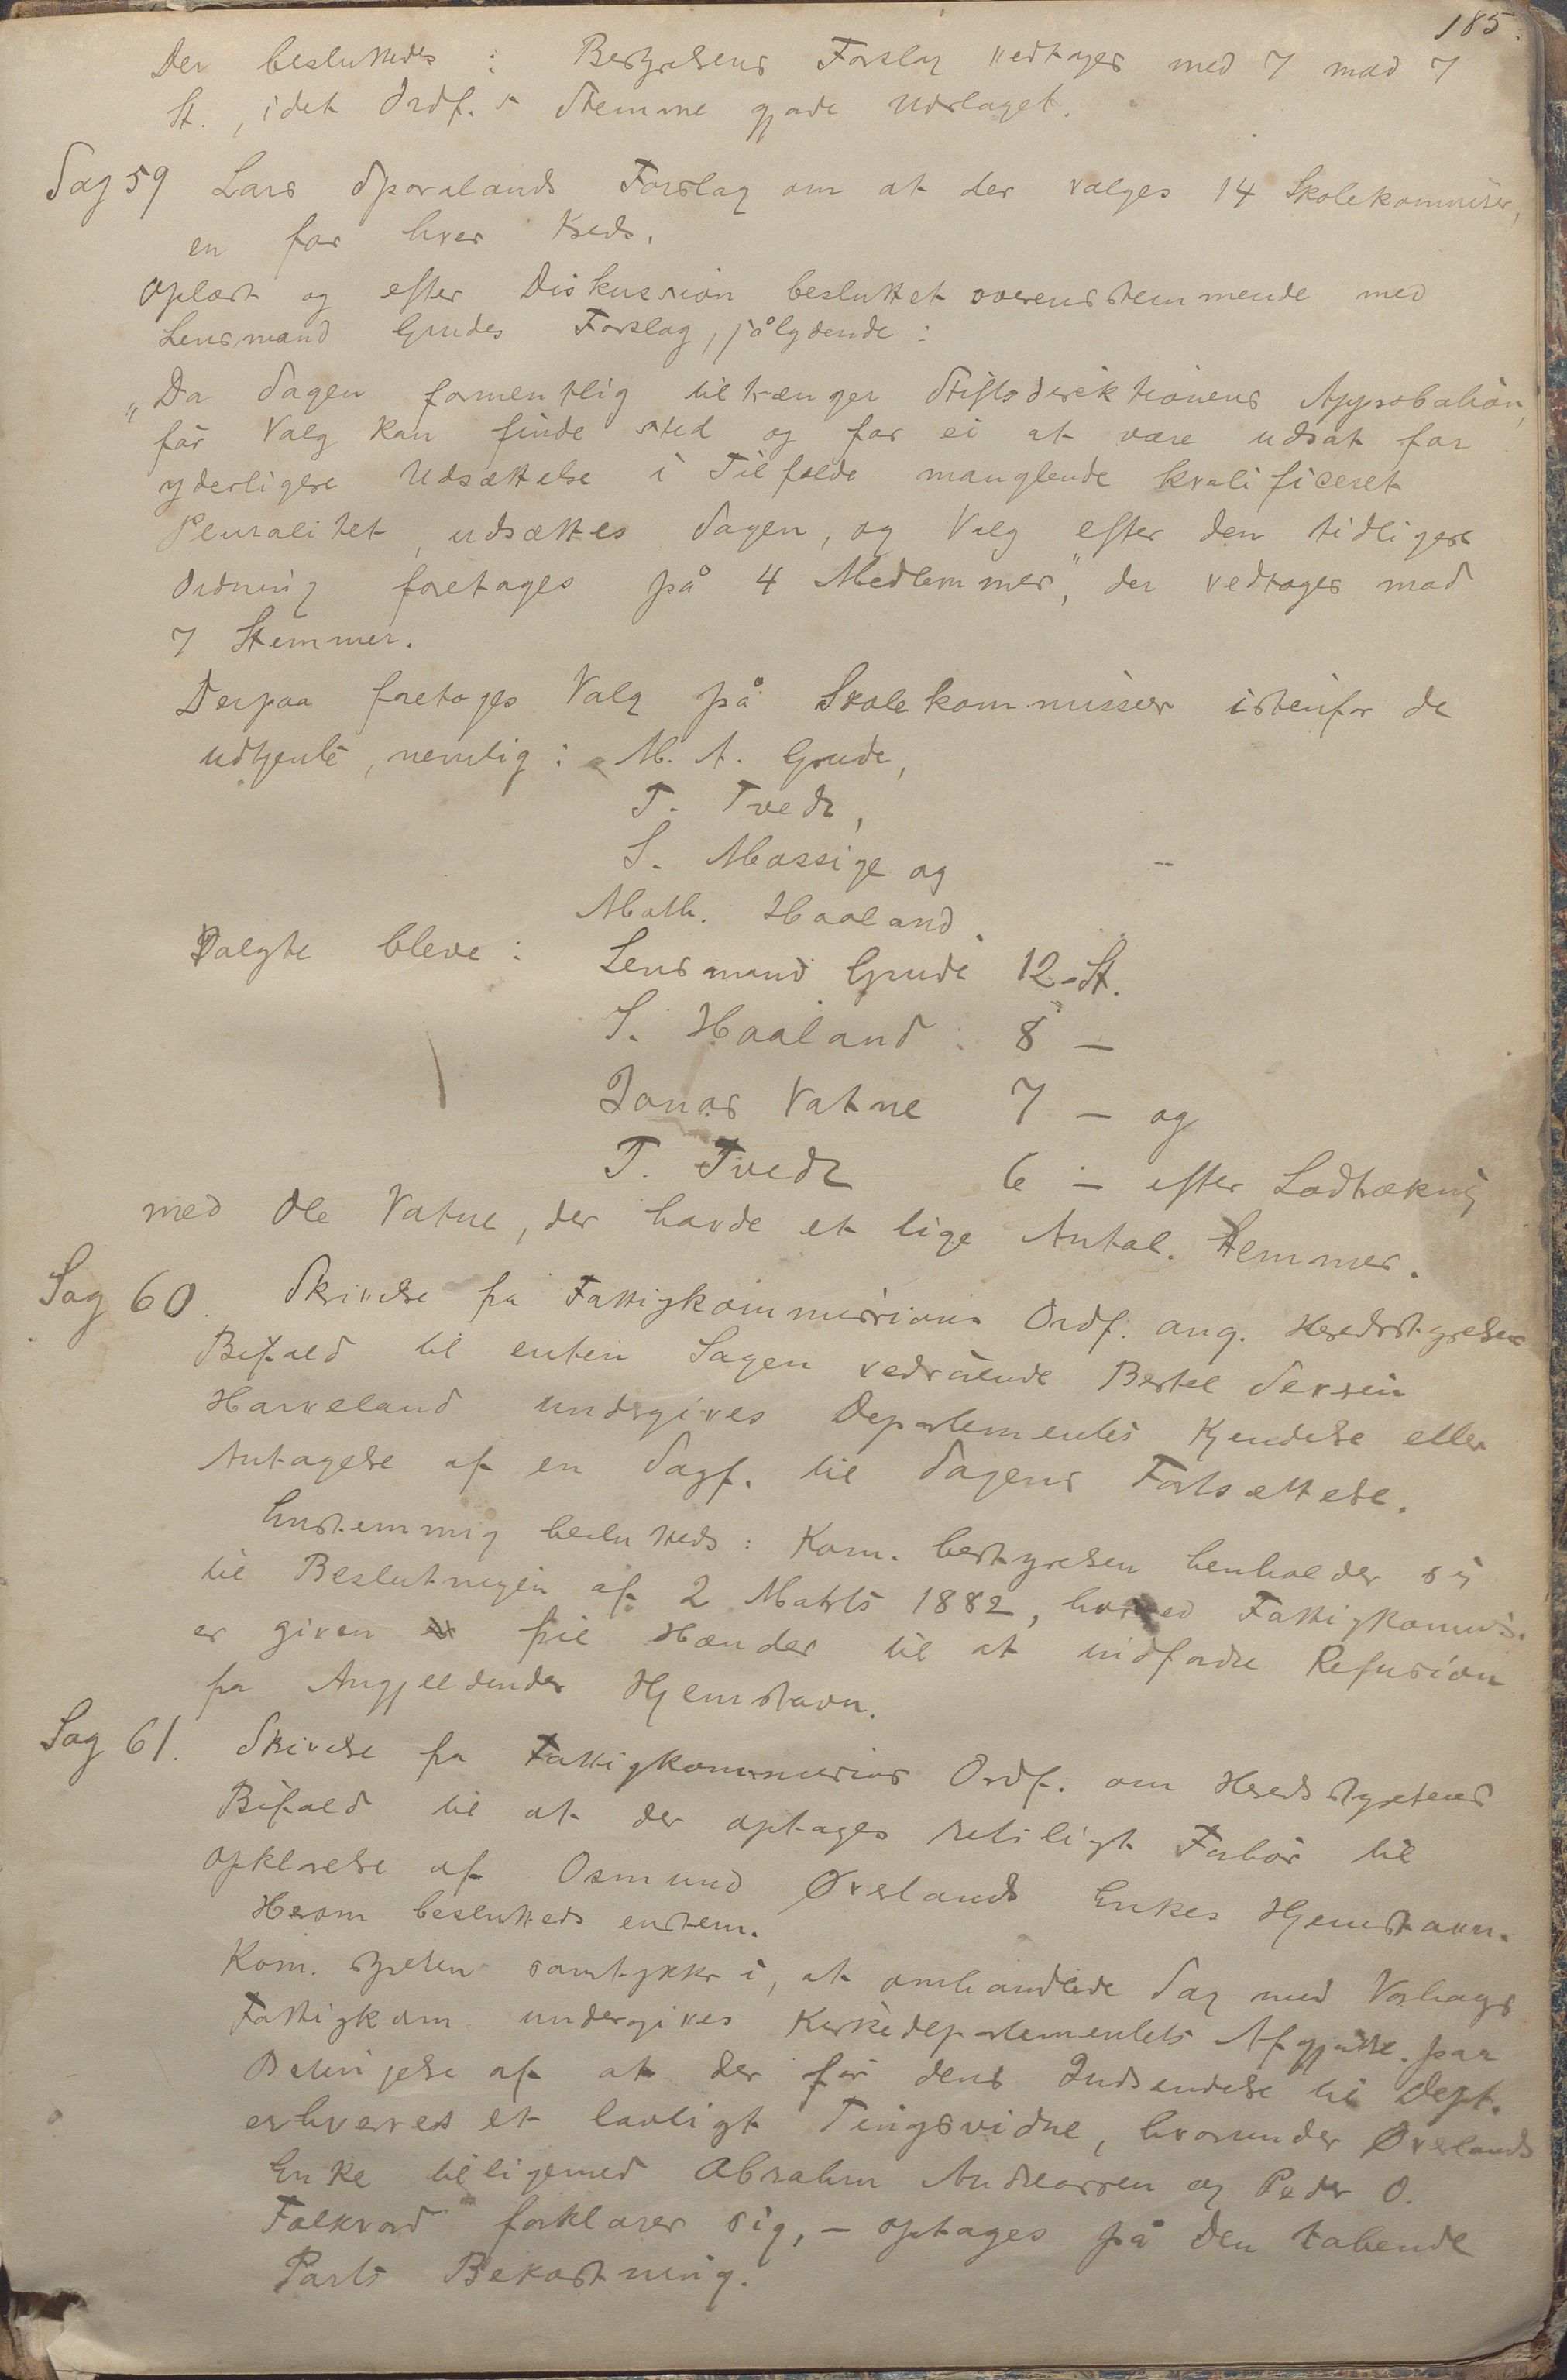 185.
Der besluttedes: Bestyrelsens Forslag vedtages med 7 mod 7
St., idet Ordf.s Stemme gjorde Udslaget.
Sag 59 Lars Sporalands Forslag om at der vælges 14 Skolekommisær,
en for hver Kreds.
Oplæst og efter Diskussion besluttet overensstemmende med
Lensmand Grudes Forslag, sålydende:
"Da Sagen formentlig tiltrænger Stiftsdirektionens Approbation,
før Valg kan finde sted og for ei at være udsat for
yderligere Udsættelse i Tilfælde manglende kvalificeret
Pluralitet, udsættes Sagen, og Valg efter den tidligere
Ordning foretages på 4 Medlemmer", der vedtoges mod
7 Stemmer.
Derpaa foretoges Valg på Skolekommissær istenfor de
udtjente, nemlig: M. A. Grude,
T. Tvedt,
S. Mossige og
Math. Haaland.
Valgte bleve: Lensmand Grude 12 St.
S. Haaland: 8 —
Jonas Vatne 7 — og
T. Tvedt 6 — efter Lodtrækning
med Ole Vatne, der havde et lige Antal Stemmer.
Sag 60. Skrivelse fra Fattigkommissions Ordf. ang. Heredsstyrelsens
Bifald til enten Sagen vedrørende Bertel Sevrin
Harveland undergives Departementets Kjendelse eller
Antagelse af en Sagf. til Sagens Fortsættelse.
Enstemmig beslutteds: Kom. bestyrelsen henholder sig
til Beslutningen af 2 Marts 1882, hvorved Fattigkommis.
er given frie Hænder til at indfordre Refusion
fra Angjeldendes Hjemstavn.
Sag 61. Skrivelse fra Fattigkommissions Ordf. om Heredsstyrelsens
Bifald til at der optages retsligt Forhør til
Opklarelse af Osmund Øvelands Enkes Hjemstavn.
Herom besluttedes enstem.
Kom. styrelsen samtykker i, at omhandlede Sag med Varhaugs
Fattigkom. undergives Kirkedepartementets Afgjørelse. paa
Betingelse af at der før dens Indsendelse til Dept.
erhverves et lovligt Tingsvidne, hvorunder Øvelands
Enke tilligemed Abraham Andreassen og Peder O.
Folkvord forklarer sig, — optages på den tabende
Parts Bekostning.